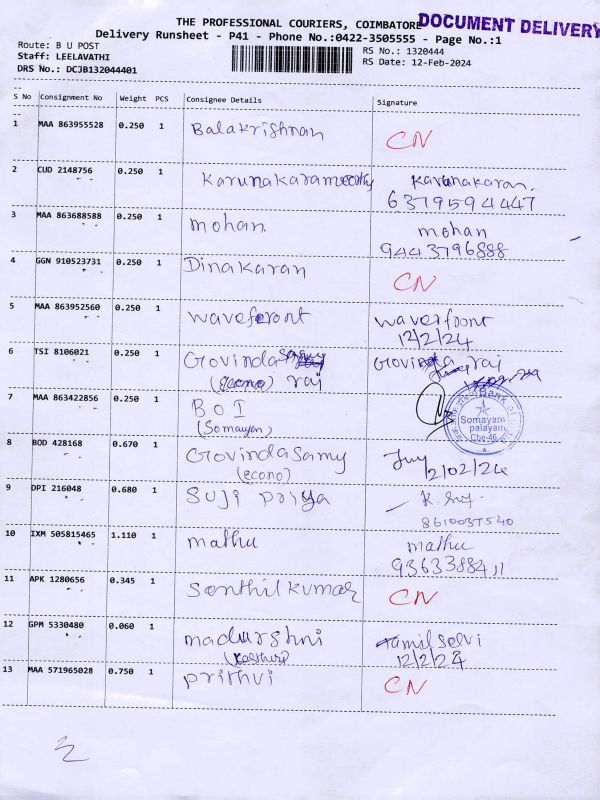 THE PROFESSIONAL COURIERS, COIMBATORE
DOCUMENT DELIVERY
Delivery Runsheet - P41 - Phone No.:0422-3505555 - Page No.:1
Route: B U POST
RS No.: 1320444
Staff: LEELAVATHI
RS Date: 12-Feb-2024
DRS No.: DCJB132044401
S No Consignment No Weight PCS Consignee Details Signature
1 MAA 863955528 0.250 1 Balakrishnan CN
2 CUD 2148756 0.250 1 Karunakaramoorthy Karunakaran.
6379594447
3 MAA 863688588 0.250 1 mohan. mohan
9443796888
4 GGN 910523731 0.250 1 Dinakaran CN
5 MAA 863952560 0.250 1 wavefront waverfront
12/2/24
6 TSI 8106021 0.250 1 Govinda Govinda raj
(econo) raj
7 MAA 863422856 0.250 1 BOI
(Somayan)
Somayam
palayam
Cbe-46
8 BOD 428168 0.670 1 Govindasamy
(econo) 12/02/24
9 DPI 216048 0.680 1 Suji Priya K.
8610037540
10 IXM 505815465 1.110 1 mathu mathu
9363388411
11 APK 1280656 0.345 1 Senthilkumar CN
12 GPM 5330480 0.060 1 madurshni Tamil Selvi
12/2/24
13 MAA 571965028 0.750 1 Prithvi CN